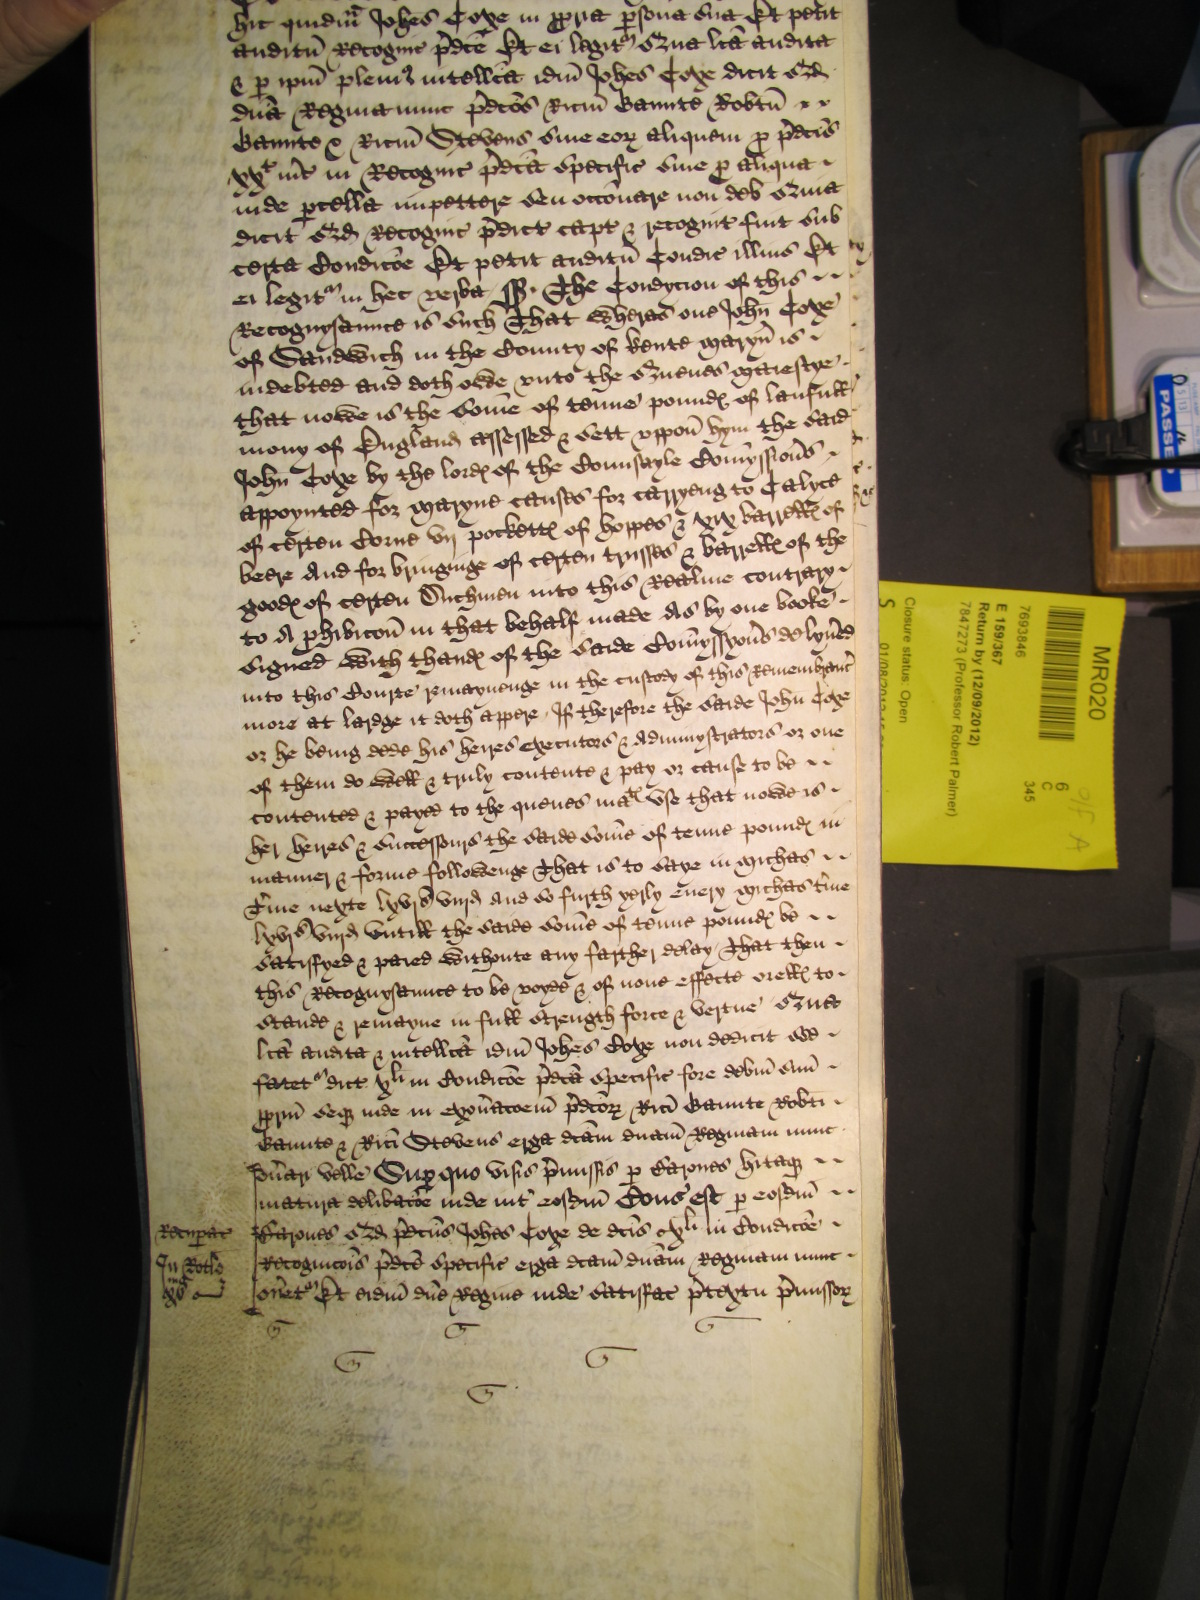 hic quidm Johes Coxe in ppria psona sua Et petit
auditu Recognic pdce Et ei legit Qua lca audita
& p ipm plen intellca idm Johes Coxe dicit qd
dna Regina nunc pdcos Ricm Bannte Robtu
Bannte & Ricm Stevens sive eor aliquem p pdcis
in Recognic pdca specific sive p aliqua
inde pcella impetere seu occonare non deb Quia
dicit qd Recognic pdict capt & recognit fuit sub
certa Condicoe Et petit auditu Condic illius Et
ei legit in hec verba ss The Condycion of this
Recognysaunce is such That Wheras one John Coxe
of Sandwich in the County of Kente maryn is
indebted and doth owe vnto the Quenes maiestye
that nowe is the some of tenne pound of laufull
mony of England assessed & sett vppon hym the said
John Coxe by the lord of the Counsayle Comyssions
appoynted for maryne causes for carryeng to Calyce
of certen Corne vij pockett of hoppes & xix barrell of
beere And for bringinge of certen trusses & barrell of the
good of certen Duchmen into this Realme contrary
to A phibicon in that behalf made As by one booke
signed with thand of the saide Comyssyons delyued
into this Courte remaynenge in the custody of this Remembranc
more at lardge it doth appere If therefore the saide John Coxe
or he being dede his heires executors & admynystrators or one
of them do well & truly contente & pay or cause to be
contented & payed to the quenes mate vse that nowe is
her heires & successours the saide some of tenne pound in
manner & forme followenge That is to saye in Michas
Tme nexte lxvjs viijd And so furth yerly euery Michas tme
lxvjs viijd vntill the saide some of tenne pound be
satisfyed & paied withoute any farther delay That then
this Recognysaunce to be voyde & of none effecte orell to
stande & remayne in full strength force & vertue Qua
lca audita & intellca idm Johes Coxe non dedicit sed
fatet dict xli in Condicoe pdca specific fore debm suu
pprm seq inde in exonacoem pdcor Rici Bannte Robti
Bannte & Rici Stevens erga dcam dnam Reginam nunc
onari velle Sup quo visis pmissis p Barones hitaq
matura delibacoe inde int eosdm Cons est p eosdm
Barones qd pdcus Johes Coxe de dcis xli in Condicoe
Recognicois pdce specific erga dcam dnam Reginam nunc
onet Et eidm dne Regine inde satisfac ptextu pmissor
Recupat
In Rotlo
MR020
7693846
6
C
345
E 159/367
Return by (12/09/2012)
7847273 (Professor Robert Palmer)
Closure status: Open
PASSE